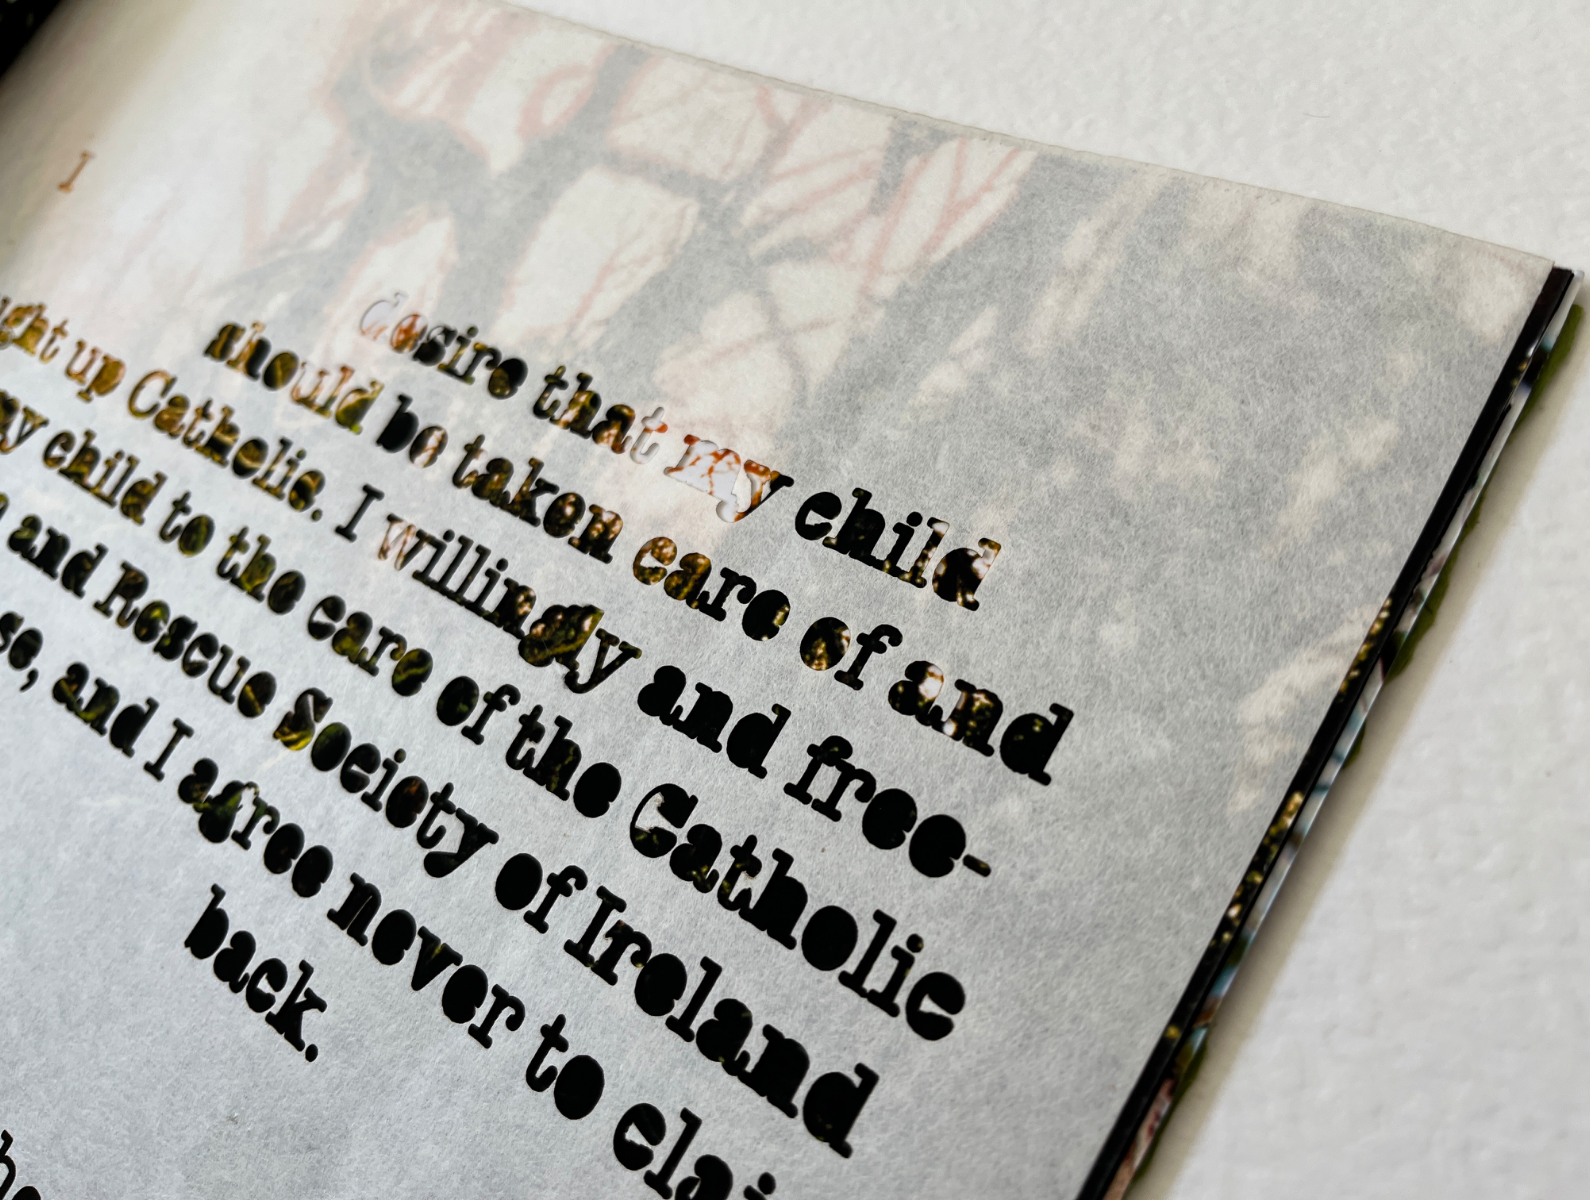 I desire that my child
should be taken care of and
ght up Catholic. I willingly and free-
y child to the care of the Catholic
and Rescue Society of Ireland
se, and I agree never to clai
back.